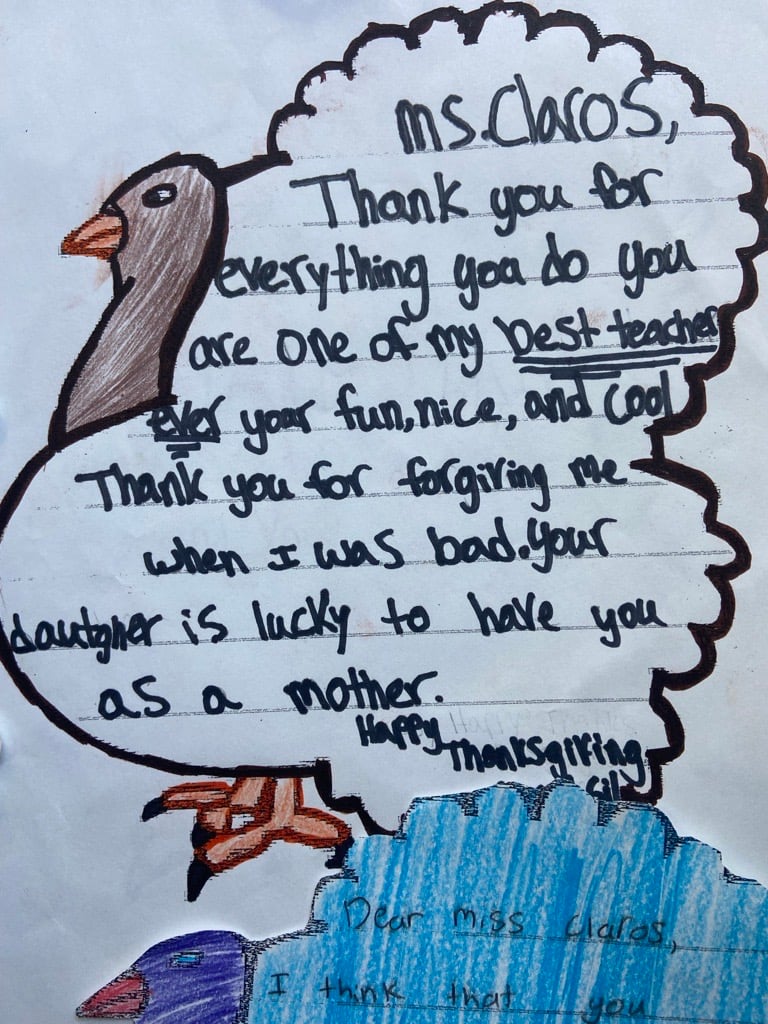 ms. Claros,
Thank you for
everything you do you
are one of my best teacher
ever your fun, nice, and cool
Thank you for forgiving me
when I was bad. your
dautgher is lucky to have you
as a mother.
Happy
Thanksgiving
Dear miss claros,
I think that you